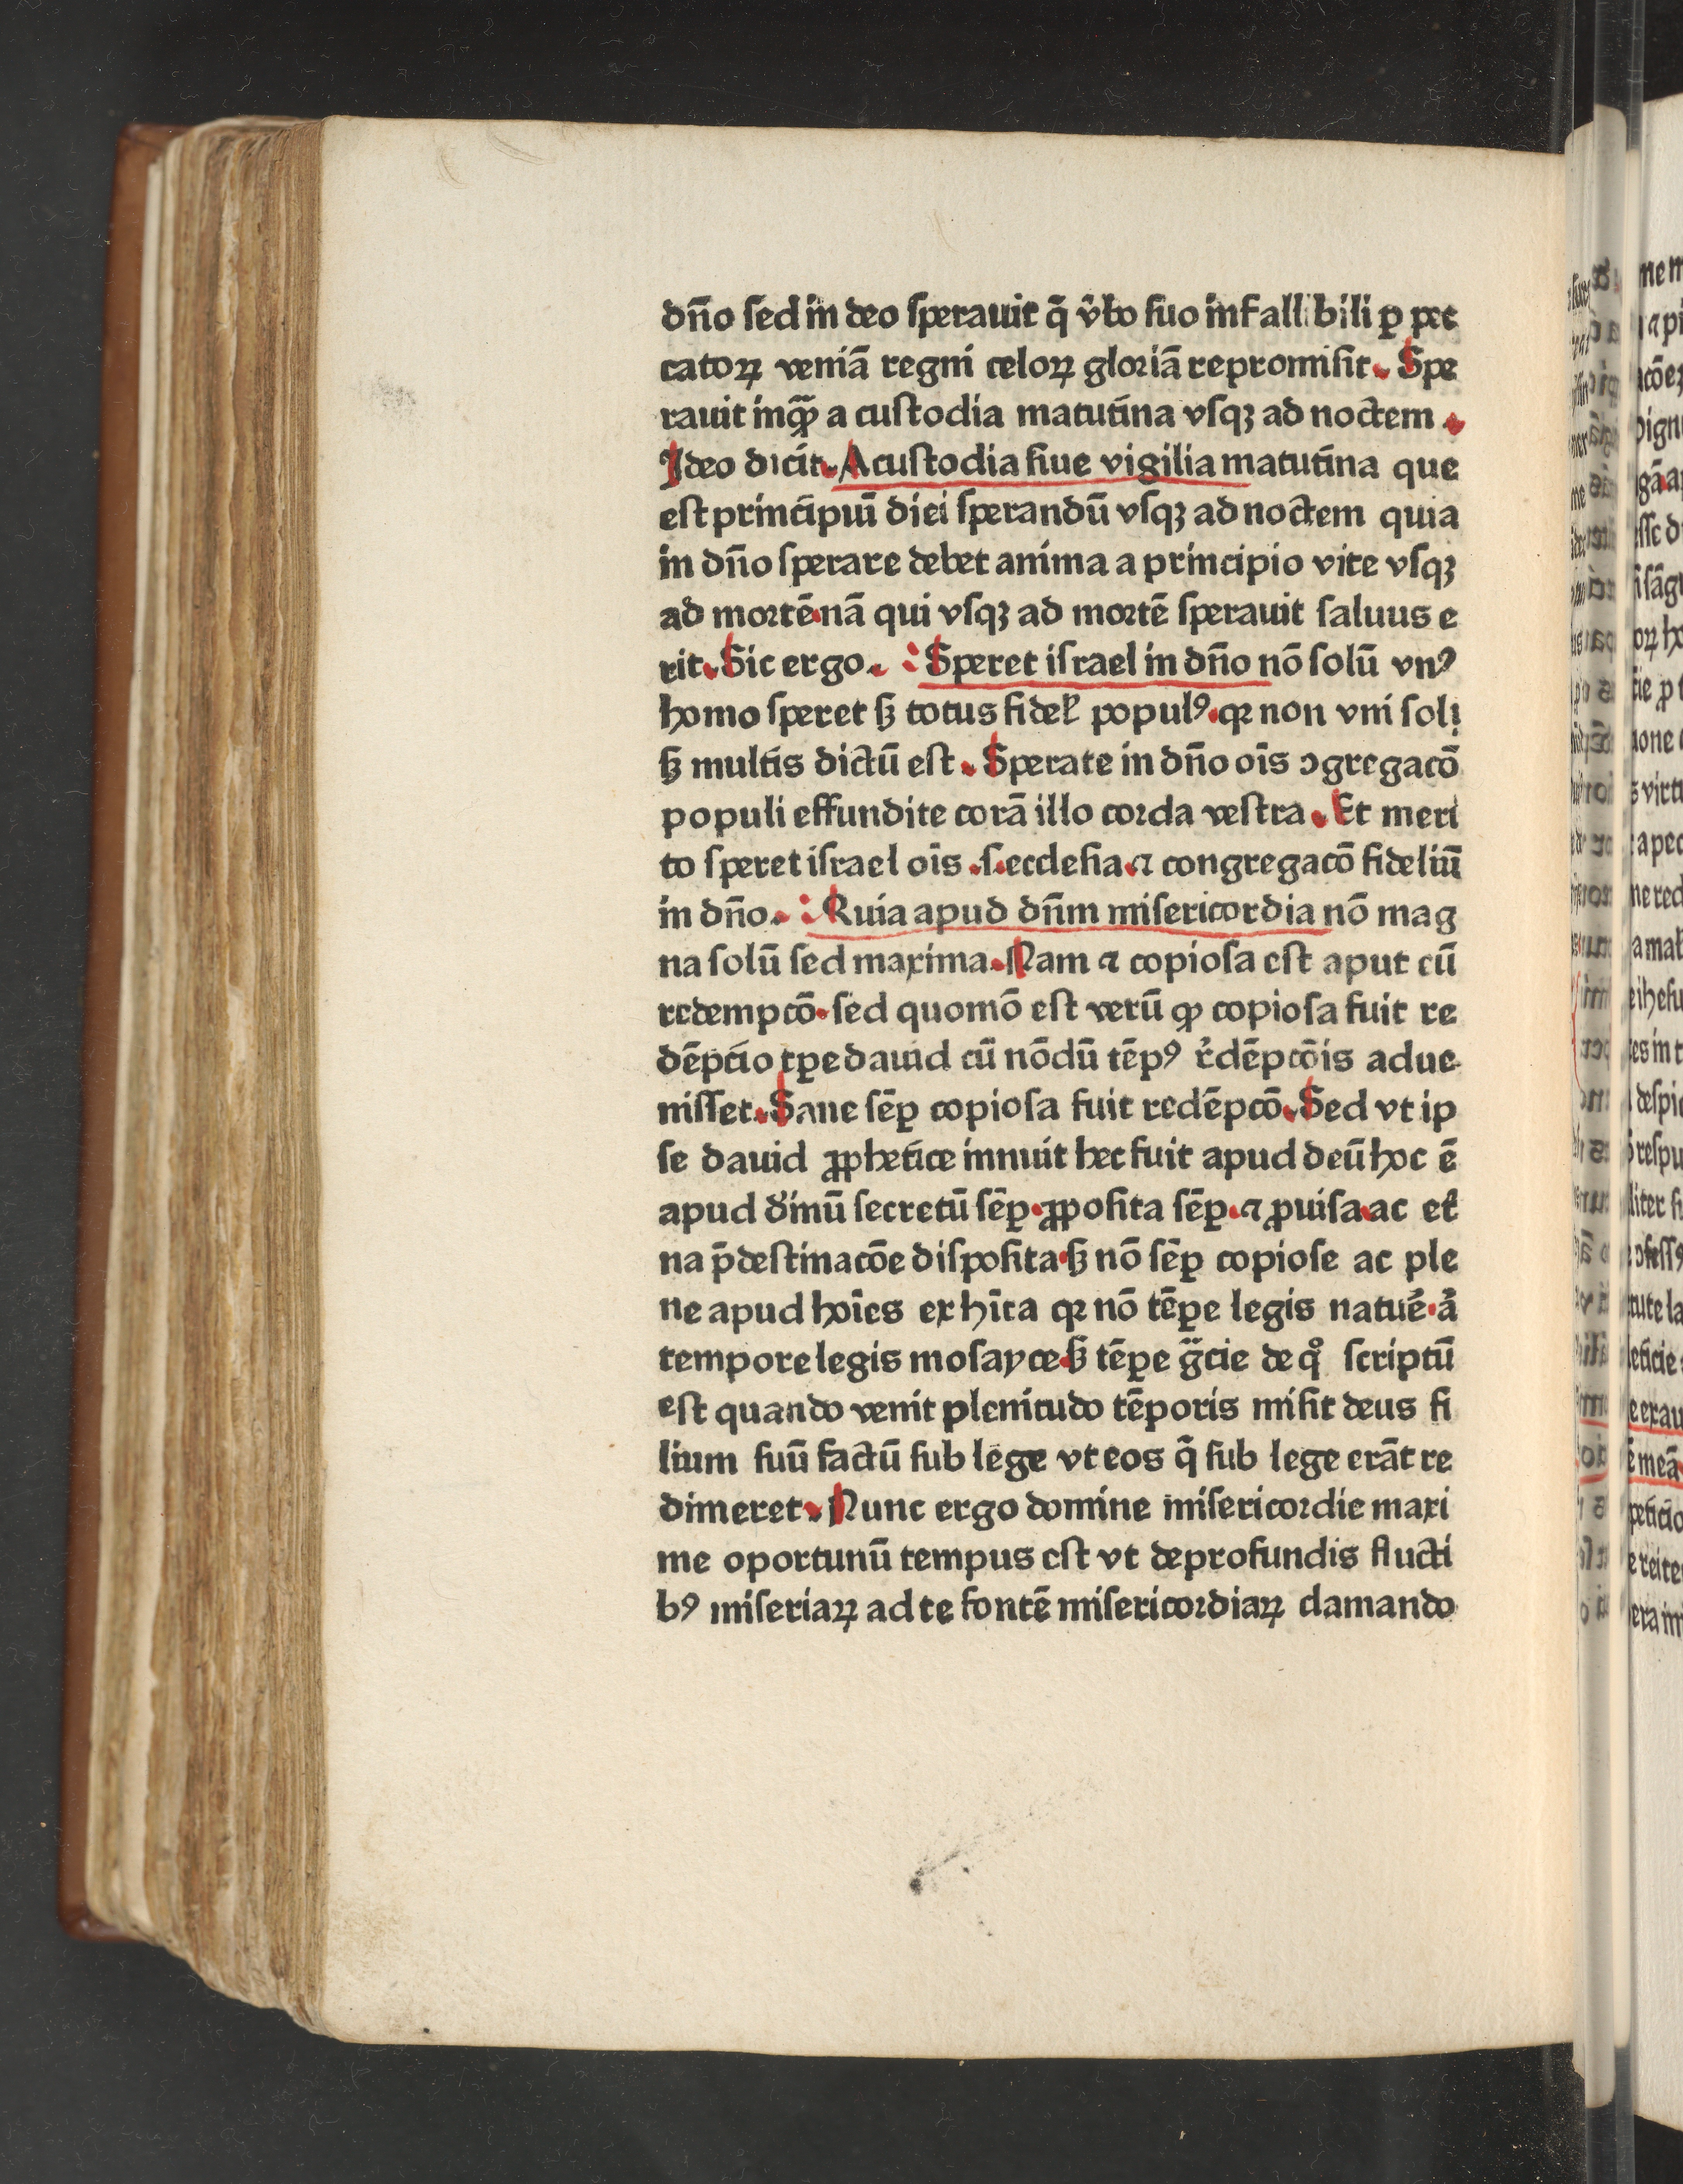 dn̄o ſed in deo ſperauit q̄ v̂bo ſuo infallibili ꝑ pec
catoꝝ veniā regni celoꝝ gloꝛiā repromiſit. Spe
rauit inqꝫ̄ a cuſtodia matutina vſqꝫ ad noctem.
Ideo dicit. A cuſtodia ſiue vigilia matutina que
eſt principiū diei ſperandū vſqꝫ ad noctem quia
in dn̄o ſperare debet anima a principio vite vſqꝫ
ad moꝛtē.nā qui vſqꝫ ad moꝛtē ſperauit ſaluus e
rit. Sic ergo. : Speret iſrael in dn̄o nō ſolū vnꝰ
homo ſperet ſꝫ totus fidel̛ populꝰ.qꝛ non vni ſoli
ſꝫ multis dictū eſt. Sperate in dn̄o oīs ↄgregacō
populi effundite corā illo coꝛda veſtra. Et meri
to ſperet iſrael oīs .ſ.eccleſia.ꝛ congregacō fideliū
in dn̄o. : Quia apud dn̄m miſericoꝛdia nō mag
na ſolū ſed maxima. Nam ꝛ copioſa eſt aput eū
redempcō.ſed quomō eſt verū ꝙ copioſa fuit re
dēpcio tꝑe dauid cū nōdū tēpꝰ r̄dēpcōis adue
niſſet. Sane ſēꝑ copioſa fuit redēpcō. Sed vt ip
ſe dauid ꝓphetice innuit hec fuit apud deū hoc ē
apud diuinū ſecretū ſēꝑ.ꝓpoſita ſēꝑ.ꝛ ꝓuiſa.ac et̛
na p̄deſtinacōe diſpoſita.ſꝫ nō ſēꝑ copioſe ac ple
ne apud hoīes exhīta qꝛ nō tēꝑe legis natuē.a̛
tempore legis moſayce.ſꝫ tēꝑe gᷓcie de qͦ ſcriptū
eſt quando venit plenitudo tēporis miſit deus fi
lium ſuū factū ſub lege vt eos q̄ ſub lege erāt re
dimeret. Nunc ergo domine miſericoꝛdie maxi
me oportunū tempus eſt vt deprofundis flucti
bꝰ miſeriaꝝ ad te fontē miſericoꝛdiaꝝ clamando